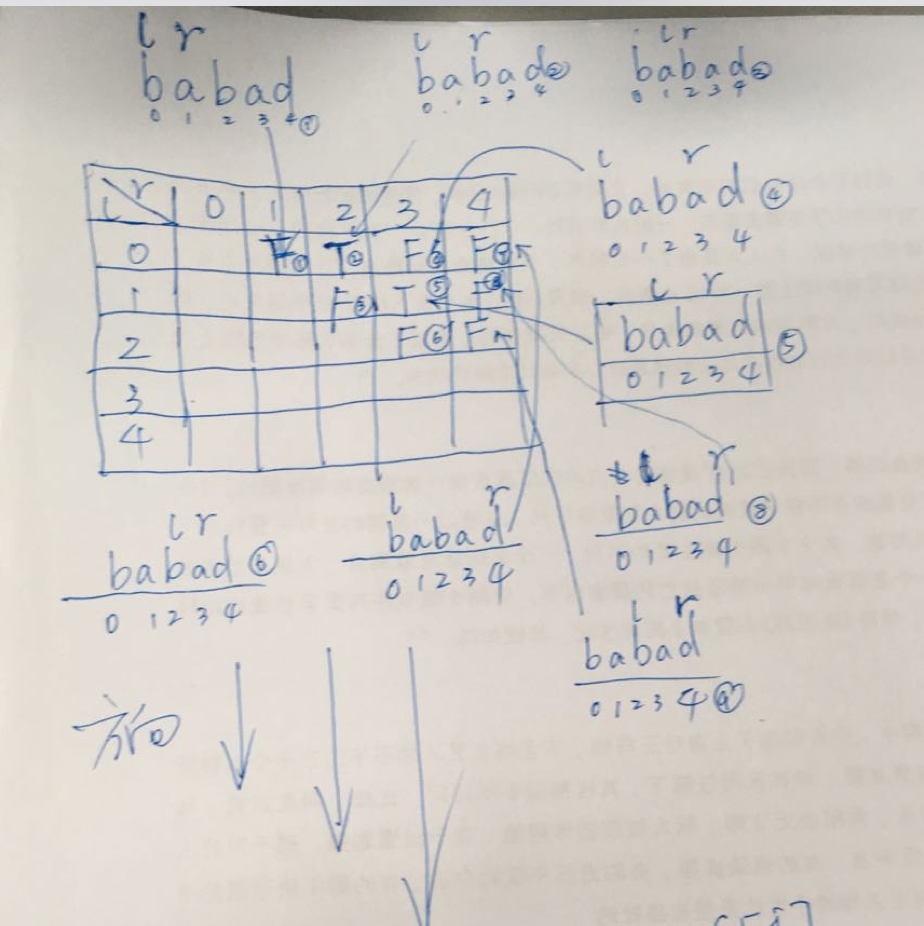 l r
babad
0 1 2 3 4 ①
l r
babad②
0 1 2 3 4
l r
babad③
0 1 2 3 4
l r
babad④
0 1 2 3 4
l r 0 1 2 3 4
0 F① T② F④ F⑦
1 F③ T⑤ F⑧
2 F⑥ F
3
4
l r
babad⑤
0 1 2 3 4
l r
babad⑥
0 1 2 3 4
l r
babad
0 1 2 3 4
l r
babad⑧
0 1 2 3 4
l r
babad
0 1 2 3 4 ⑨
方向